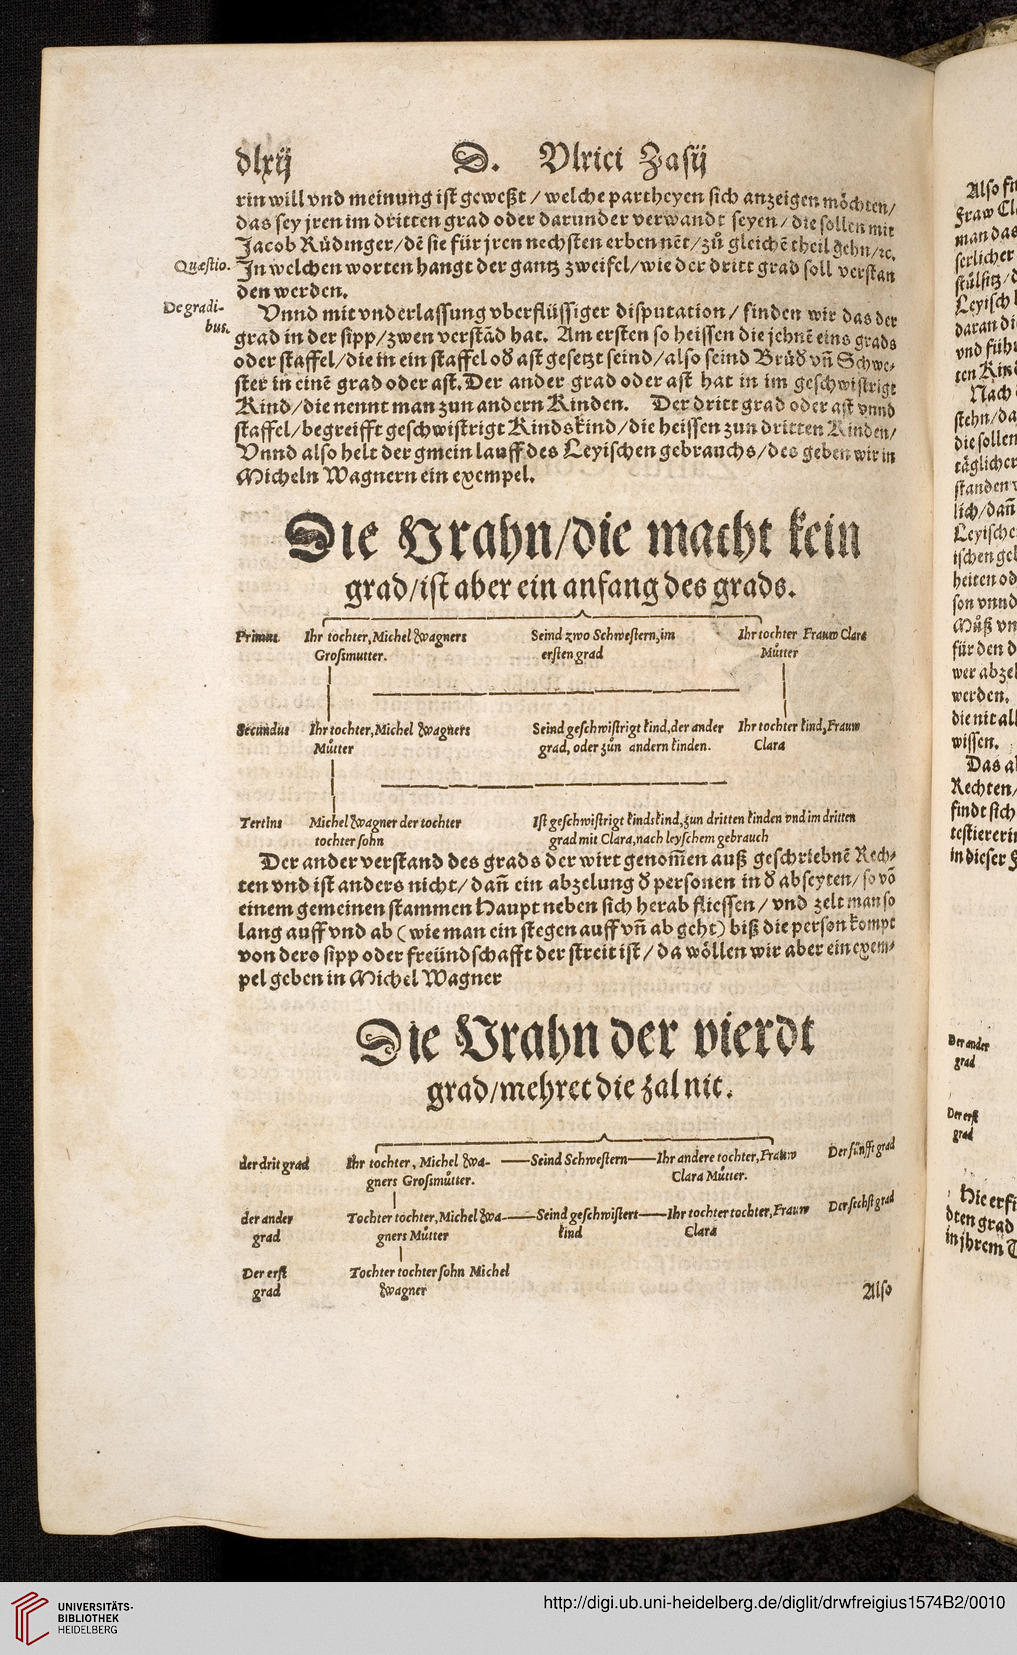 dlxij D. Vlrici Zasij
rin will vnd meinung ist geweßt / welche partheyen sich anzeigen möchten/
das sey jren im dritten grad oder darunder verwandt seyen / die sollen mit
Jacob Rüdinger/dẽ sie für jren nechsten erben nẽt/zů gleichẽ theil gehn/ꝛc.
Quæstio. Jn welchen worten hangt der gantz zweifel/wie der dritt grad soll verstan
den werden.
De gradi-
bus.
Vnnd mit vnderlassung vberflüssiger disputation / finden wir das der
grad in der sipp/zwen verstãd hat. Am ersten so heissen die jehnẽ eins grads
oder staffel/die in ein staffel oď ast gesetzt seind/also seind Brůď vñ Schwe-
ster in einẽ grad oder ast. Der ander grad oder ast hat in im geschwistrigt
Kind/die nennt man zun andern Kinden. Der dritt grad oder ast vnnd
staffel/begreifft geschwistrigt Kindskind/die heissen zun dritten Kinden/
Vnnd also helt der gmein lauff des Leyischen gebrauchs/des geben wir in
Micheln Wagnern ein exempel.
Die Vrahn/die macht kein
grad/ist aber ein anfang des grads.
Primus Ihr tochter, Michel Wagners Seind zwo Schwestern,im Ihr tochter Frauw Clara
Grossmutter. ersten grad Můtter
Secundus Ihr tochter, Michel Wagners Seind geschwistrigt kind,der ander Ihr tochter kind, Frauw
Můtter grad, oder zůn andern kinden. Clara
Tertius Michel Wagner der tochter Ist geschwistrigt kindskind,zun dritten kinden vnd im dritten
tochter sohn grad mit Clara,nach leyschem gebrauch
Der ander verstand des grads der wirt genom̃en auß geschriebnẽ Rech-
ten vnd ist anders nicht/ dañ ein abzelung ď personen in ď abseyten/ so võ
einem gemeinen stammen Haupt neben sich herab fliessen / vnd zelt man so
lang auff vnd ab ( wie man ein stegen auff vñ ab geht) biß die person kompt
von dero sipp oder freündschafft der streit ist / da wöllen wir aber ein exem-
pel geben in Michel Wagner
Die Vrahn der vierdt
grad/mehret die zal nit.
der drit grad Ihr tochter, Michel Wa- Seind Schwestern Ihr andere tochter, Frauw Der fünfft grad
gners Grossmůtter. Clara Můtter.
der ander Tochter tochter, Michel Wa- Seind geschwistert Ihr tochter tochter, Frauw Der sechst grad
grad gners Můtter kind Clara
Der erst Tochter tochter sohn Michel
grad Wagner
Also
Der ander
grad
Der erst
grad
UNIVERSITÄTS-
BIBLIOTHEK
HEIDELBERG
http://digi.ub.uni-heidelberg.de/diglit/drwfreigius1574B2/0010